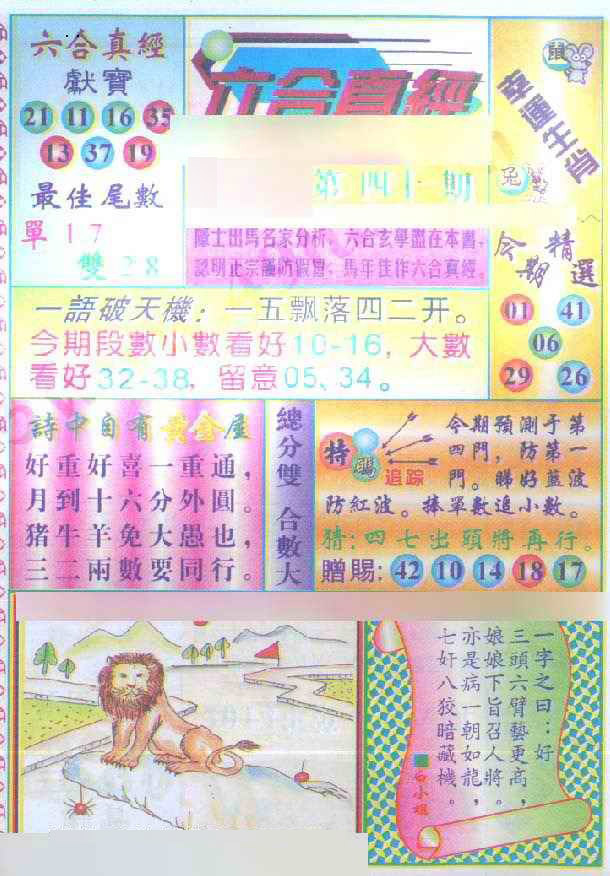 六合真經
獻寶
21 11 16 35
13 37 19
最佳尾數
單17
雙28
六合真經
第四十期
隱士出馬名家分析，六合玄學盡在本書，
認明正宗謹防假冒，馬年佳作六合真經。
鼠
幸運生肖
兔
今期精選
01 41
06
29 26
一語破天機：一五飘落四二开。
今期段數小數看好10-16，大數
看好32-38，留意05、34。
詩中自有黃金屋
好重好喜一重通，
月到十六分外圓。
猪牛羊兔大愚也，
三二兩數要同行。
總分雙 合數大
特碼
追踪
今期預測于第
四門，防第一
門。睇好藍波
防紅波。捧單數追小數。
猜:四七出頭將再行。
贈賜: 42 10 14 18 17
一字之曰：好
三頭六臂藝更高，
娘娘下旨召人將。
亦是病一朝如龍，
七奸八狡暗藏機。
白小姐